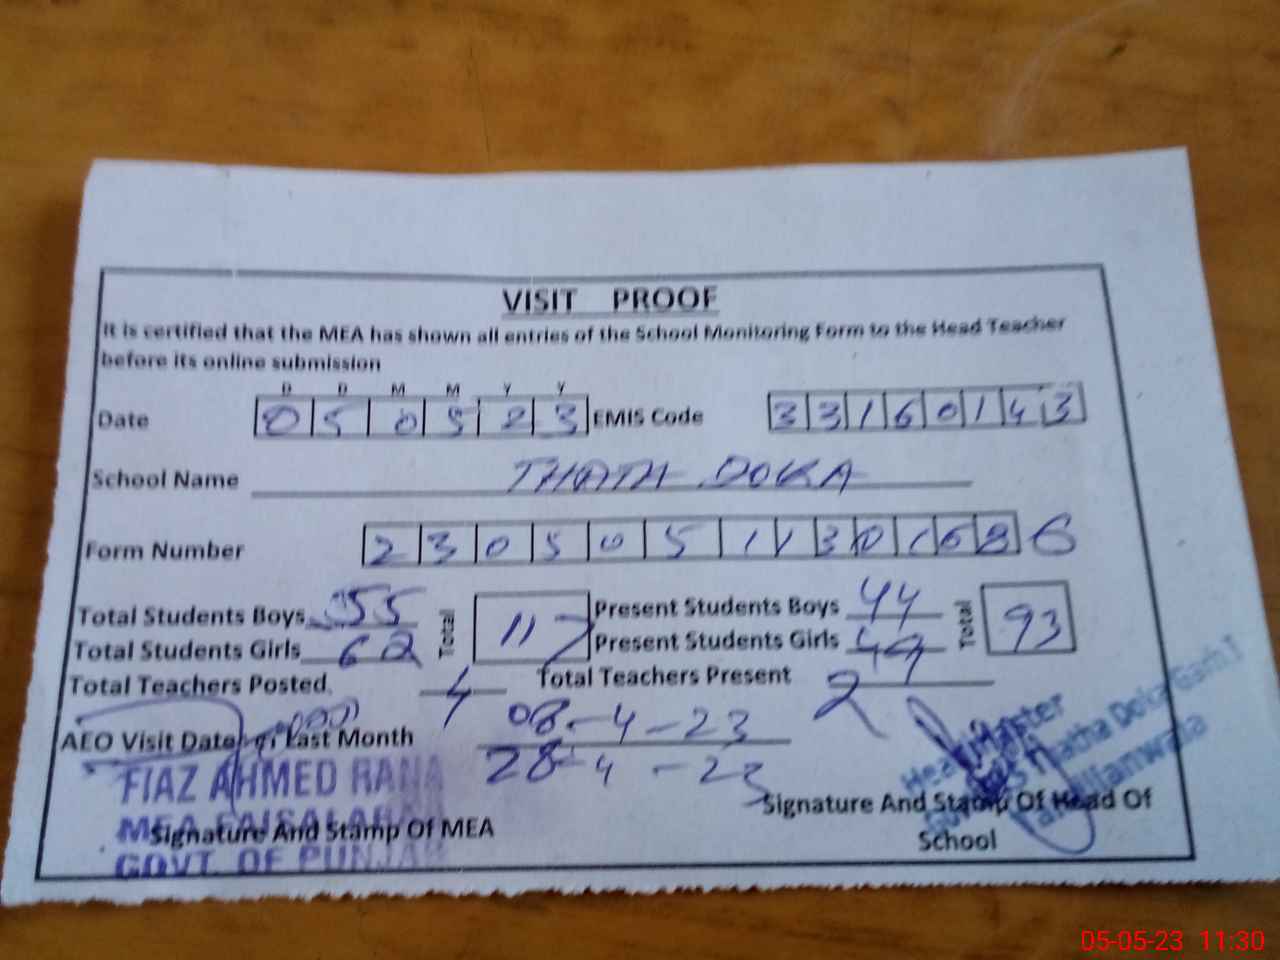 VISIT PROOF
It is certified that the MEA has shown all entries of the School Monitoring Form to the Head Teacher
before its online submission
D D M M Y Y
Date 0 5 0 5 2 3 EMIS Code 3 3 1 6 0 1 4 3
School Name THATH DOKA
Form Number 2 3 0 5 0 5 1 1 3 0 1 6 8 6
Total Students Boys 55 Total 117 Present Students Boys 44 Total 93
Total Students Girls 62 Present Students Girls 49
Total Teachers Posted 4 Total Teachers Present 2
AEO Visit Date in Last Month 08-4-23
28-4-23
FIAZ AHMED RANA
MEA FAISALABAD
GOVT. OF PUNJAB
Signature And Stamp Of MEA
Headmaster
Thatha Doka
Signature And Stamp Of Head Of
School
05-05-23 11:30